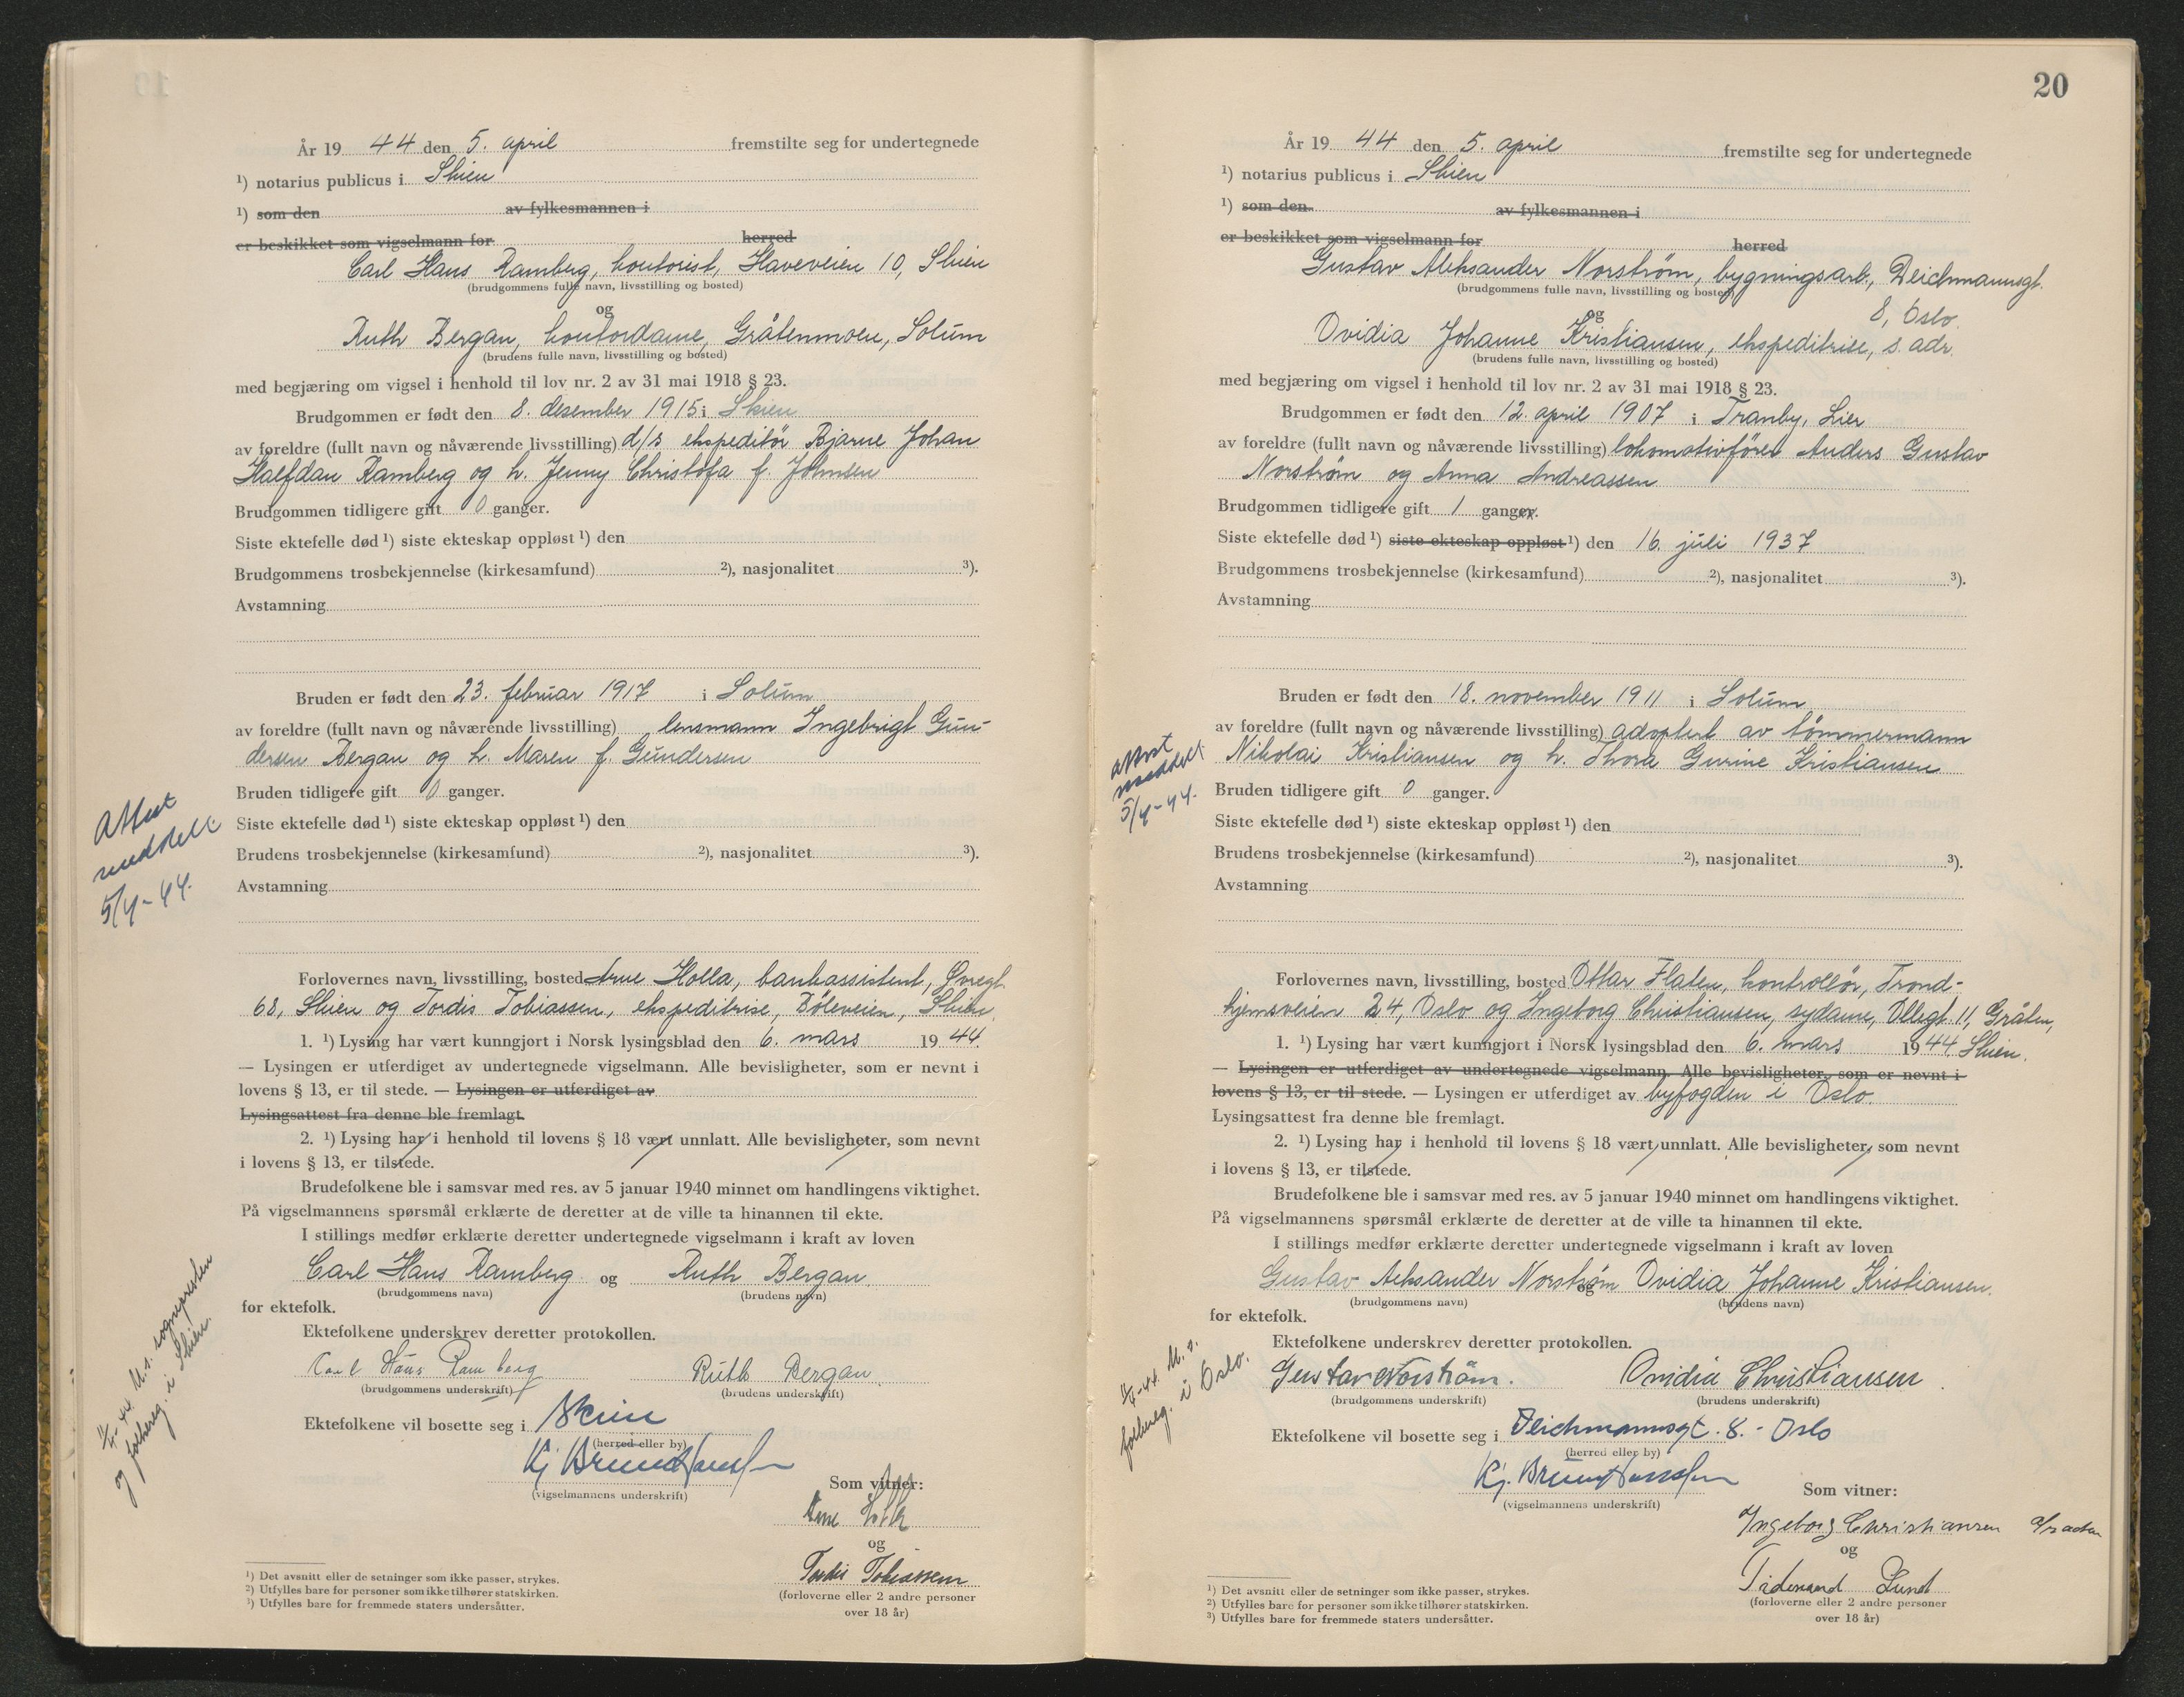 År 19 44 den 5. april fremstilte seg for undertegnede
¹) notarius publicus i Skien
¹) som den av fylkesmannen i
er beskikket som vigselmann for herred
Carl Hans Ramberg, kontorist, Haveveien 10, Skien
(brudgommens fulle navn, livsstilling og bosted)
og
Ruth Bergan, kontordame, Gråtenmoen, Solum
(brudens fulle navn, livsstilling og bosted)
med begjæring om vigsel i henhold til lov nr. 2 av 31 mai 1918 § 23.
Brudgommen er født den 8. desember 1915 i Skien
av foreldre (fullt navn og nåværende livsstilling) d/s ekspeditör Bjarne Johan
Halfdan Ramberg og h. Jenny Christofa f. Johnsen
Brudgommen tidligere gift 0 ganger.
Siste ektefelle død ¹) siste ekteskap oppløst ¹) den
Brudgommens trosbekjennelse (kirkesamfund) ²), nasjonalitet ³).
Avstamning
Bruden er født den 23. februar 1917 i Solum
av foreldre (fullt navn og nåværende livsstilling) lensmann Ingebrigt Gun-
dersen Bergan og h. Maren f. Gundersen
Bruden tidligere gift 0 ganger.
Siste ektefelle død ¹) siste ekteskap oppløst ¹) den
Brudens trosbekjennelse (kirkesamfund) ²), nasjonalitet ³).
Avstamning
Attest
meddelt
5/4-44.
Forlovernes navn, livsstilling, bosted Arne Holla, bankassistent, Øvregt.
68, Skien og Tordis Tobiassen, ekspeditrise, Böleveien, Skien.
1. ¹) Lysing har vært kunngjort i Norsk lysingsblad den 6. mars 19 44
— Lysingen er utferdiget av undertegnede vigselmann. Alle bevisligheter, som er nevnt i
lovens § 13, er til stede. — Lysingen er utferdiget av
Lysingsattest fra denne ble fremlagt.
2. ¹) Lysing har i henhold til lovens § 18 vært unnlatt. Alle bevisligheter, som nevnt
i lovens § 13, er tilstede.
Brudefolkene ble i samsvar med res. av 5 januar 1940 minnet om handlingens viktighet.
På vigselmannens spørsmål erklærte de deretter at de ville ta hinannen til ekte.
I stillings medfør erklærte deretter undertegnede vigselmann i kraft av loven
Carl Hans Ramberg og Ruth Bergan.
(brudgommens navn) (brudens navn)
for ektefolk.
Ektefolkene underskrev deretter protokollen.
Carl Hans Ramberg Ruth Bergan.
(brudgommens underskrift) (brudens underskrift)
Ektefolkene vil bosette seg i Skien
(herred eller by)
Kj. Brun Hanssen
(vigselmannens underskrift)
Som vitner:
Arne Holla
og
Tordis Tobiassen
(forloverne eller 2 andre personer
over 18 år)
-44 U. s. sognepresten
og folkereg. i Skien.
¹) Det avsnitt eller de setninger som ikke passer, strykes.
²) Utfylles bare for personer som ikke tilhører statskirken.
³) Utfylles bare for fremmede staters undersåtter.
20
År 19 44 den 5. april fremstilte seg for undertegnede
¹) notarius publicus i Skien
¹) som den av fylkesmannen i
er beskikket som vigselmann for herred
Gustav Aleksander Norstrøm, bygningsarb., Deichmannsgt.
(brudgommens fulle navn, livsstilling og bosted)
8, Oslo.
og
Ovidia Johanne Kristiansen, ekspeditrise, s. adr.
(brudens fulle navn, livsstilling og bosted)
med begjæring om vigsel i henhold til lov nr. 2 av 31 mai 1918 § 23.
Brudgommen er født den 12. april 1907 i Tranby, Lier
av foreldre (fullt navn og nåværende livsstilling) lokomotivförer Anders Gustav
Norstrøm og Anna Andreassen
Brudgommen tidligere gift 1 ganger.
Siste ektefelle død ¹) siste ekteskap oppløst ¹) den 16. juli 1937
Brudgommens trosbekjennelse (kirkesamfund) ²), nasjonalitet ³).
Avstamning
Bruden er født den 18. november 1911 i Solum
av foreldre (fullt navn og nåværende livsstilling) adoptert av tömmermann
Nikolai Kristiansen og h. Thora Gurine Kristiansen
Bruden tidligere gift 0 ganger.
Siste ektefelle død ¹) siste ekteskap oppløst ¹) den
Brudens trosbekjennelse (kirkesamfund) ²), nasjonalitet ³).
Avstamning
Attest
meddelt
5/4-44.
Forlovernes navn, livsstilling, bosted Ottar Flaten, kontrollör, Trond-
hjemsveien 24, Oslo og Ingeborg Christiansen, sydame, Ollegt. 11, Gråten,
1. ¹) Lysing har vært kunngjort i Norsk lysingsblad den 6. mars 19 44 Skien.
— Lysingen er utferdiget av undertegnede vigselmann. Alle bevisligheter, som er nevnt i
lovens § 13, er til stede. — Lysingen er utferdiget av byfogden i Oslo.
Lysingsattest fra denne ble fremlagt.
2. ¹) Lysing har i henhold til lovens § 18 vært unnlatt. Alle bevisligheter, som nevnt
i lovens § 13, er tilstede.
Brudefolkene ble i samsvar med res. av 5 januar 1940 minnet om handlingens viktighet.
På vigselmannens spørsmål erklærte de deretter at de ville ta hinannen til ekte.
I stillings medfør erklærte deretter undertegnede vigselmann i kraft av loven
Gustav Aleksander Norstrøm og Ovidia Johanne Kristiansen.
(brudgommens navn) (brudens navn)
for ektefolk.
Ektefolkene underskrev deretter protokollen.
Gustav Norström. Ovidia Christiansen.
(brudgommens underskrift) (brudens underskrift)
Ektefolkene vil bosette seg i Deichmannsgt. 8. - Oslo
(herred eller by)
Kj. Brun Hanssen
(vigselmannens underskrift)
Som vitner:
Ingeborg Christiansen
og
Tidemand Lund
(forloverne eller 2 andre personer
over 18 år)
-44 U. s.
folkereg. i Oslo.
¹) Det avsnitt eller de setninger som ikke passer, strykes.
²) Utfylles bare for personer som ikke tilhører statskirken.
³) Utfylles bare for fremmede staters undersåtter.